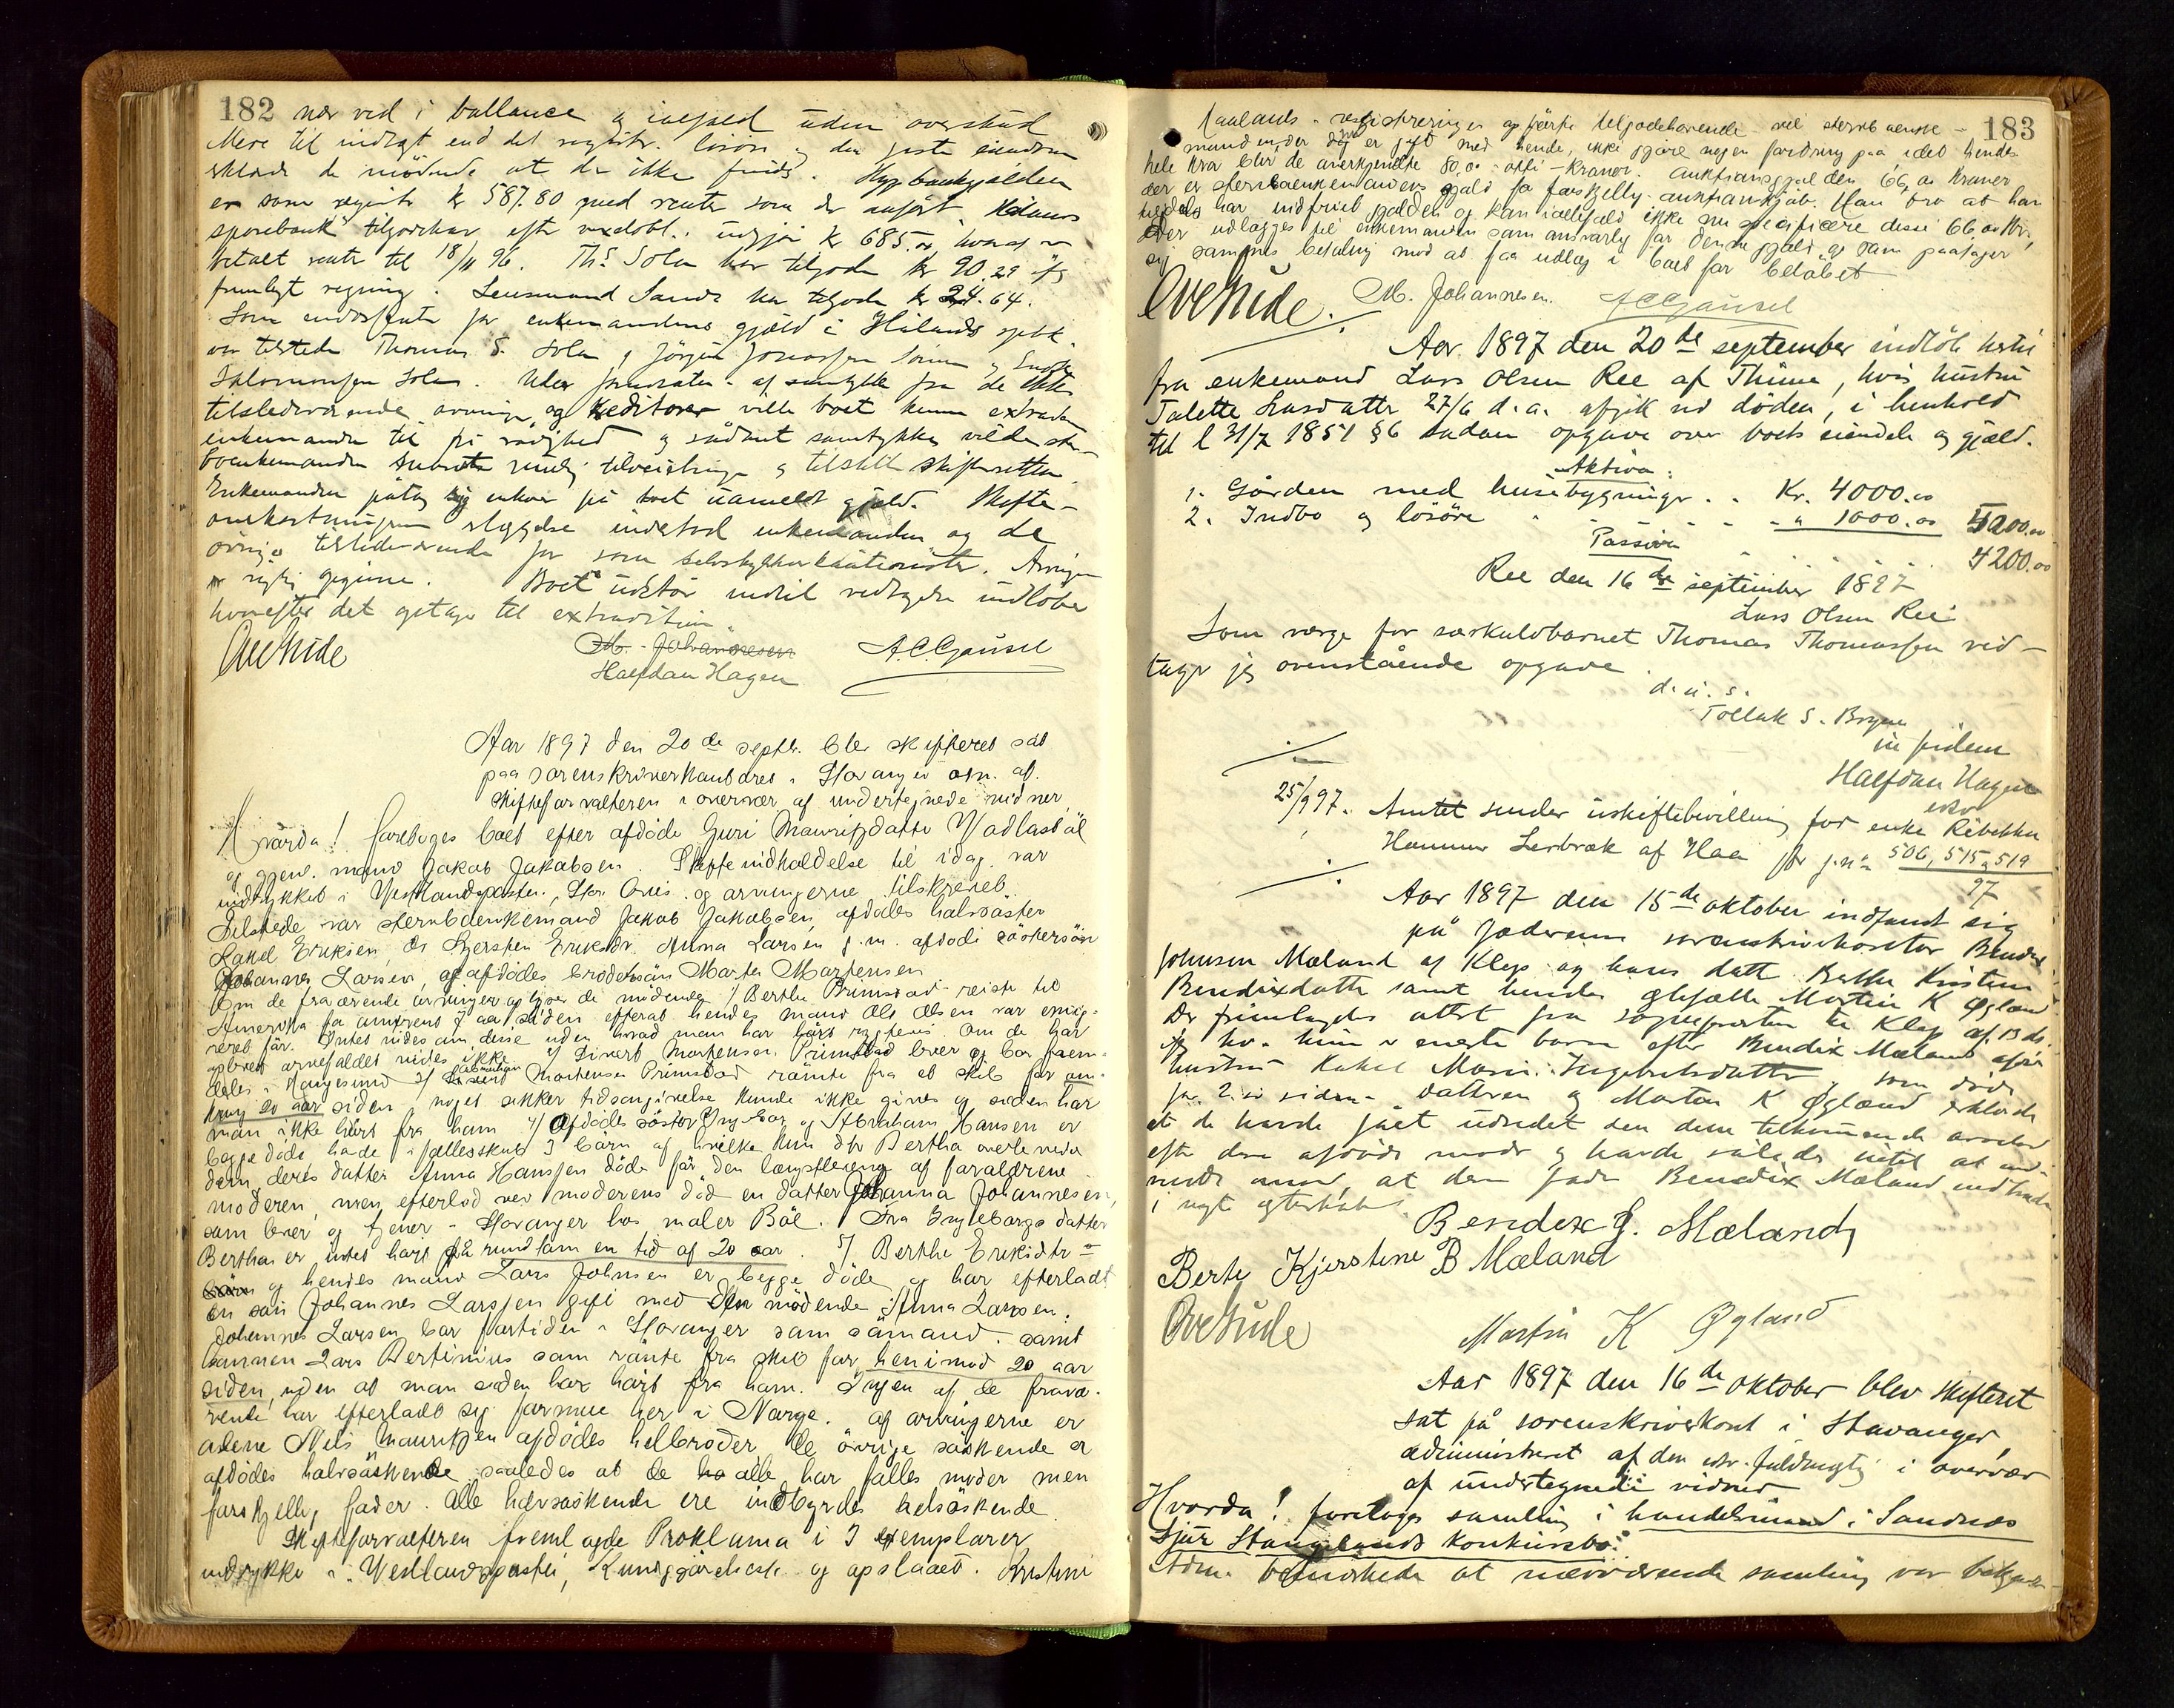 182 nær ved i ballance og ialfald uden overskud
Mere til indtægt end det registr. løsøre og den faste eiendom
de mødende at der ikke findes. Hypbankgjælden
er som registr kr 587.80 med renter som der anført. Hølands
sparebank's tilgodehav. efter vexelobl. udgjør kr 685.00, hvoraf er
betalt rente til 18/11 96. Ths. Sola har tilgode kr 90.29 ifg
fremlagt regning. Lensmand Sande har tilgode kr 24.64.
Som for enkemandens gjæld i Hølands spbk.
var tilstede Thomas S. Sola, Jørgen Jonassen Sømme og
Salomonsen Sola. Under forudsætn. af samtykke fra de ikke
tilstedeværende arvinge og kreditorer ville boet kunne extraderes
enkemanden til fri rådighed og sådant samtykke vilde sterv-
boenkemanden tilveiebringe og tilstille skifteretten.
Enkemanden påtog sig enhver på boet uanmeldt gjæld. Skifte-
omkostningernes indestod enkemanden og de
øvrige tilstedeværende for som selvskyldnerkautionister. Arvingerne
er rigtig opgivne. Boet udstår indtil vedtagelse indløber
hvorefter det optages til extradition.
Ove Hude M. Johannesen A.C. Gausel
Halfdan Hagen
Aar 1897 den 20de septbr. blev skifteret sat
paa sorenskriverkontoret i Stavanger adm. af.
skifteforvalteren i overvær af undertegnede vidner
Hvorda! foretoges boet efter afdøde Guri Mauritzdatter Vadlasbøl
og gjenl. mand Jakob Jakobsen. Skifteindkaldelse til idag var
indrykket i Vestlandsposten, Stav. Avis og arvingerne tilskrevet.
Tilstede var stervboenkemand Jakob Jakobsen, afdødes halvsøster
Rakel Eriksen, do Kjersten Eriksdr. Anna Larsen g.m. afdødes søstersøn
Johannes Larsen, og afdødes brodersøn Morten Mortensen
Om de fraværende arvinger oplyser de mødende 1/ Berthe Primstad reiste til
Amerika for omtrent 7 aar siden efterat hendes mand Ole Olsen var emig-
reret før. Intet vides om disse uden hvad man har hørt rygtevis. Om de har
oplevet arvefaldet vides ikke. 2/ Sivert Mortensen Primstad lever og bor frem-
deles i Haugesund 3/ Mortensen Primstad rømte fra et skib for om-
kring 20 aar siden, noget sikker tidsangivelse kunde ikke gives og siden har
man ikke hørt fra ham 4/ Afdødes søster Ingeborg og Abraham Hansen er
begge døde havde i fællesskab 3 børn af hvilke kun dtr Bertha overlevede
dem, deres datter Anna Hanssen døde før den længstlevende af forældrene
moderen, men efterlod ved moderens død en datter Johanna Johannesen,
som lever og tjener i Stavanger hos maler Bøe. Fra Ingeborgs datter
Bertha er intet hørt på rundt om en tid af 20 aar. 5/ Berthe Eriksdtr
og hendes mand Lars Johnsen er begge døde og har efterladt
en søn Johannes Larssen gift med den mødende Anna Larsen.
Johannes Larsen bor fortiden i Stavanger som sømand. samt
sønnen Lars Bertinius som rømte fra skib for henimod 20 aar
siden, uden at man siden har hørt fra ham. Ingen af de fravæ-
rende har efterladt sig formue her i Norge. af arvingerne er
alene Nels Mauritzen afdødes helbroder, de øvrige søskende er
afdødes halvsøskende saaledes at de alle har fælles moder men
forskjellig fader. Alle halvsøskende ere indbyrdes helsøskende.
Skifteforvalteren fremlagde Proklama i 3 exemplarer
indrykket i Vestlandsposten, Kundgjørelsest. og opslaaet. Kristine
183
Haalands registreringen opførte tilgodehavende vil stervboenke-
manden, der er gift med hende, ikke gjøre nogen fordring paa idet hendes
hele krav blir de anerkjendte 80,00 - otti - kroner. Auktionsgjælden 66,00 kroner
der er stervboenkemandens gjæld for forskjellig auktionskjøb. Han tror at han
har indfriet gjælden og kan iallfald ikke nu specificere disse 66,00 kr,
der udlægges til enkemanden som ansvarlig for denne gjæld og som paatager
sig sammes betaling mod at faa udlæg i boet for beløbet
Ove Hude. M. Johannesen. A C Gausel
Aar 1897 den 20de september indløb hertil
fra enkemand Lars Olsen Ree af Thime, hvis hustru
Talette Larsdatter 27/6 d.a. afgik ved døden, i henhold
til l 31/7 1851 §6 sådan opgave over boets eiendele og gjæld.
Aktiva:
1. Gården med husebygninger . . Kr. 4000.00
2. Indbo og løsøre . . . . " 1000.00 5000.00
Passiva . . . 4200.00
Ree den 16de september 1897
Lars Olsen Ree
Som værge for særkuldbarnet Thomas Thomassen ved-
tager jeg ovenstående opgave
d. u. s.
Tollak S. Bryne
in fidem
Halfdan Hagen
edsv
25/9 97. Amtet sender uskiftebevilling for enke Rebekka
Hammer Lerbræk af Haa jfr j.nr 506, 515 og 519
97
Aar 1897 den 15de oktober indfandt sig
på Jæderens sorenskriverkontor Bendix
Johnsen Mæland af Klep og hans datt. Berthe Kristine
Bendixdatter samt hendes Martin K Øgland
Der fremlagdes attest fra sognepresten til Klep af 13 ds.
hv. hun er eneste barn efter Bendix Mælands afdøde
hustru Rakel Marie Ingebretsdatter, som døde
for 2 år siden. Datteren og Martin K Øgland erklærede
at de havde fået udredet den dem tilkommende arvelod
efter den afdøde moder og havde således intet at ind-
vende imod, at dem fader Bendix Mæland indtræder
i nyt ægteskab.
Bendix J. Mæland
Berte Kjerstine B Mæland
Ove Hude
Martin K Øgland
Aar 1897 den 16de oktober blev skifteret
sat på sorenskriverkont i Stavanger,
administreret af den edsv. fuldmægtig i overvær
af undertegnede vidner
Hvorda! foretoges samling i handelsmand i Sandnæs
Sjur Stangelands konkursbo.
Adm. bemærkede at nærværende samling var